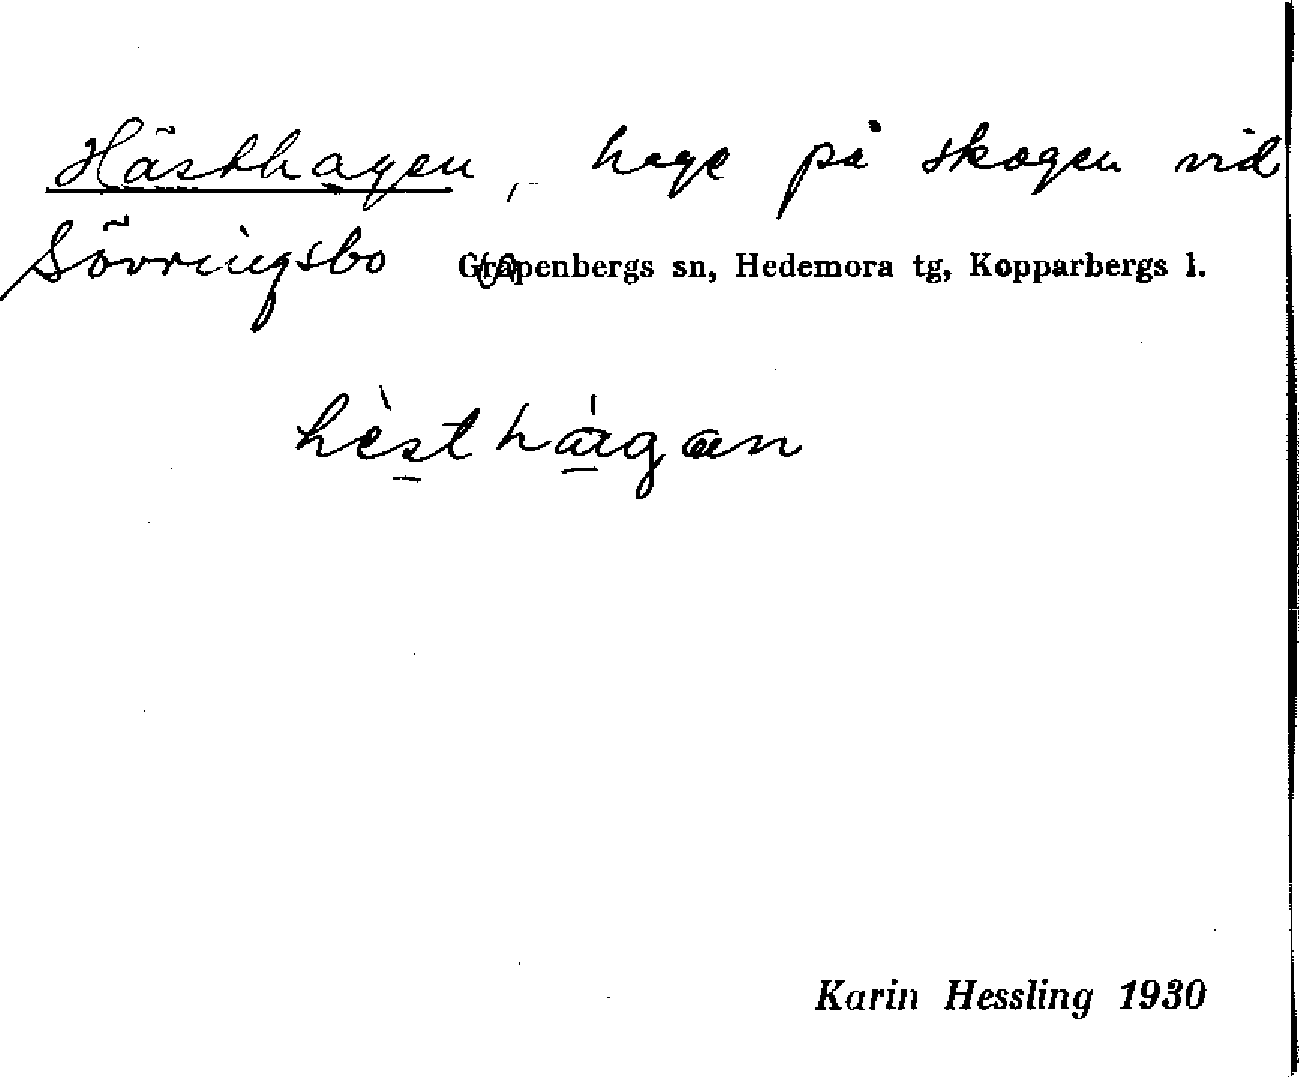 Hästhagen, hage på skogen vid
Sörringsbo Garpenbergs sn, Hedemora tg, Kopparbergs l.
hèst hágan
Karin Hessling 1930